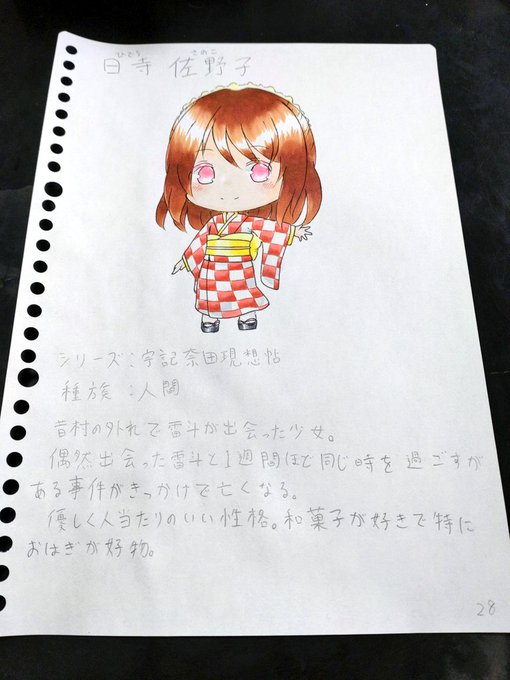 ひでり さのこ
日寺 佐野子
シリーズ:宇記奈田現想帖
種族:人間
昔村の外れで雷斗が出会った少女。
偶然出会った雷斗と1週間ほど同じ時を過ごすが
ある事件がきっかけで亡くなる。
優しく人当たりのいい性格。和菓子が好きで特に
おはぎが好物。
28